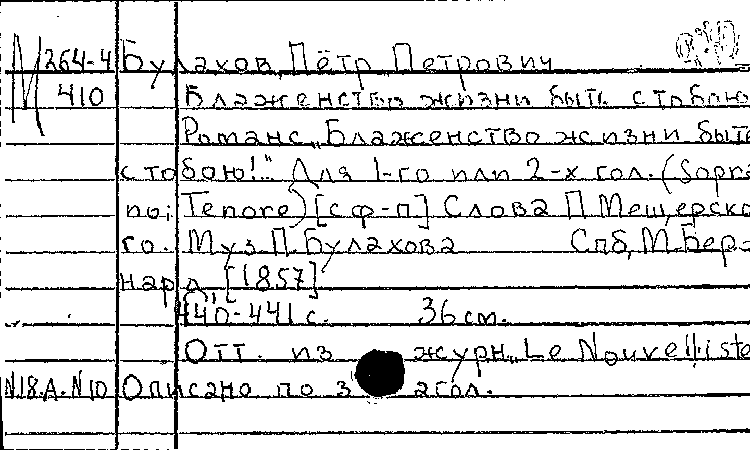 М 264-4 Булахов, Пётр Петрович
410 Блаженство жизни быть с тобою
Романс „Блаженство жизни быть
с тобою!" Для 1-го или 2-х гол. (Sopra
no; Tenore) [с ф-п] Слова П. Мещерско
го. Муз. П. Булахова Спб, М. Бер-
нард, [1857]
440-441 с. 36 см.
Отт. из журн. „Le Nouvelliste
N.18.A.N10 Описано по загол.